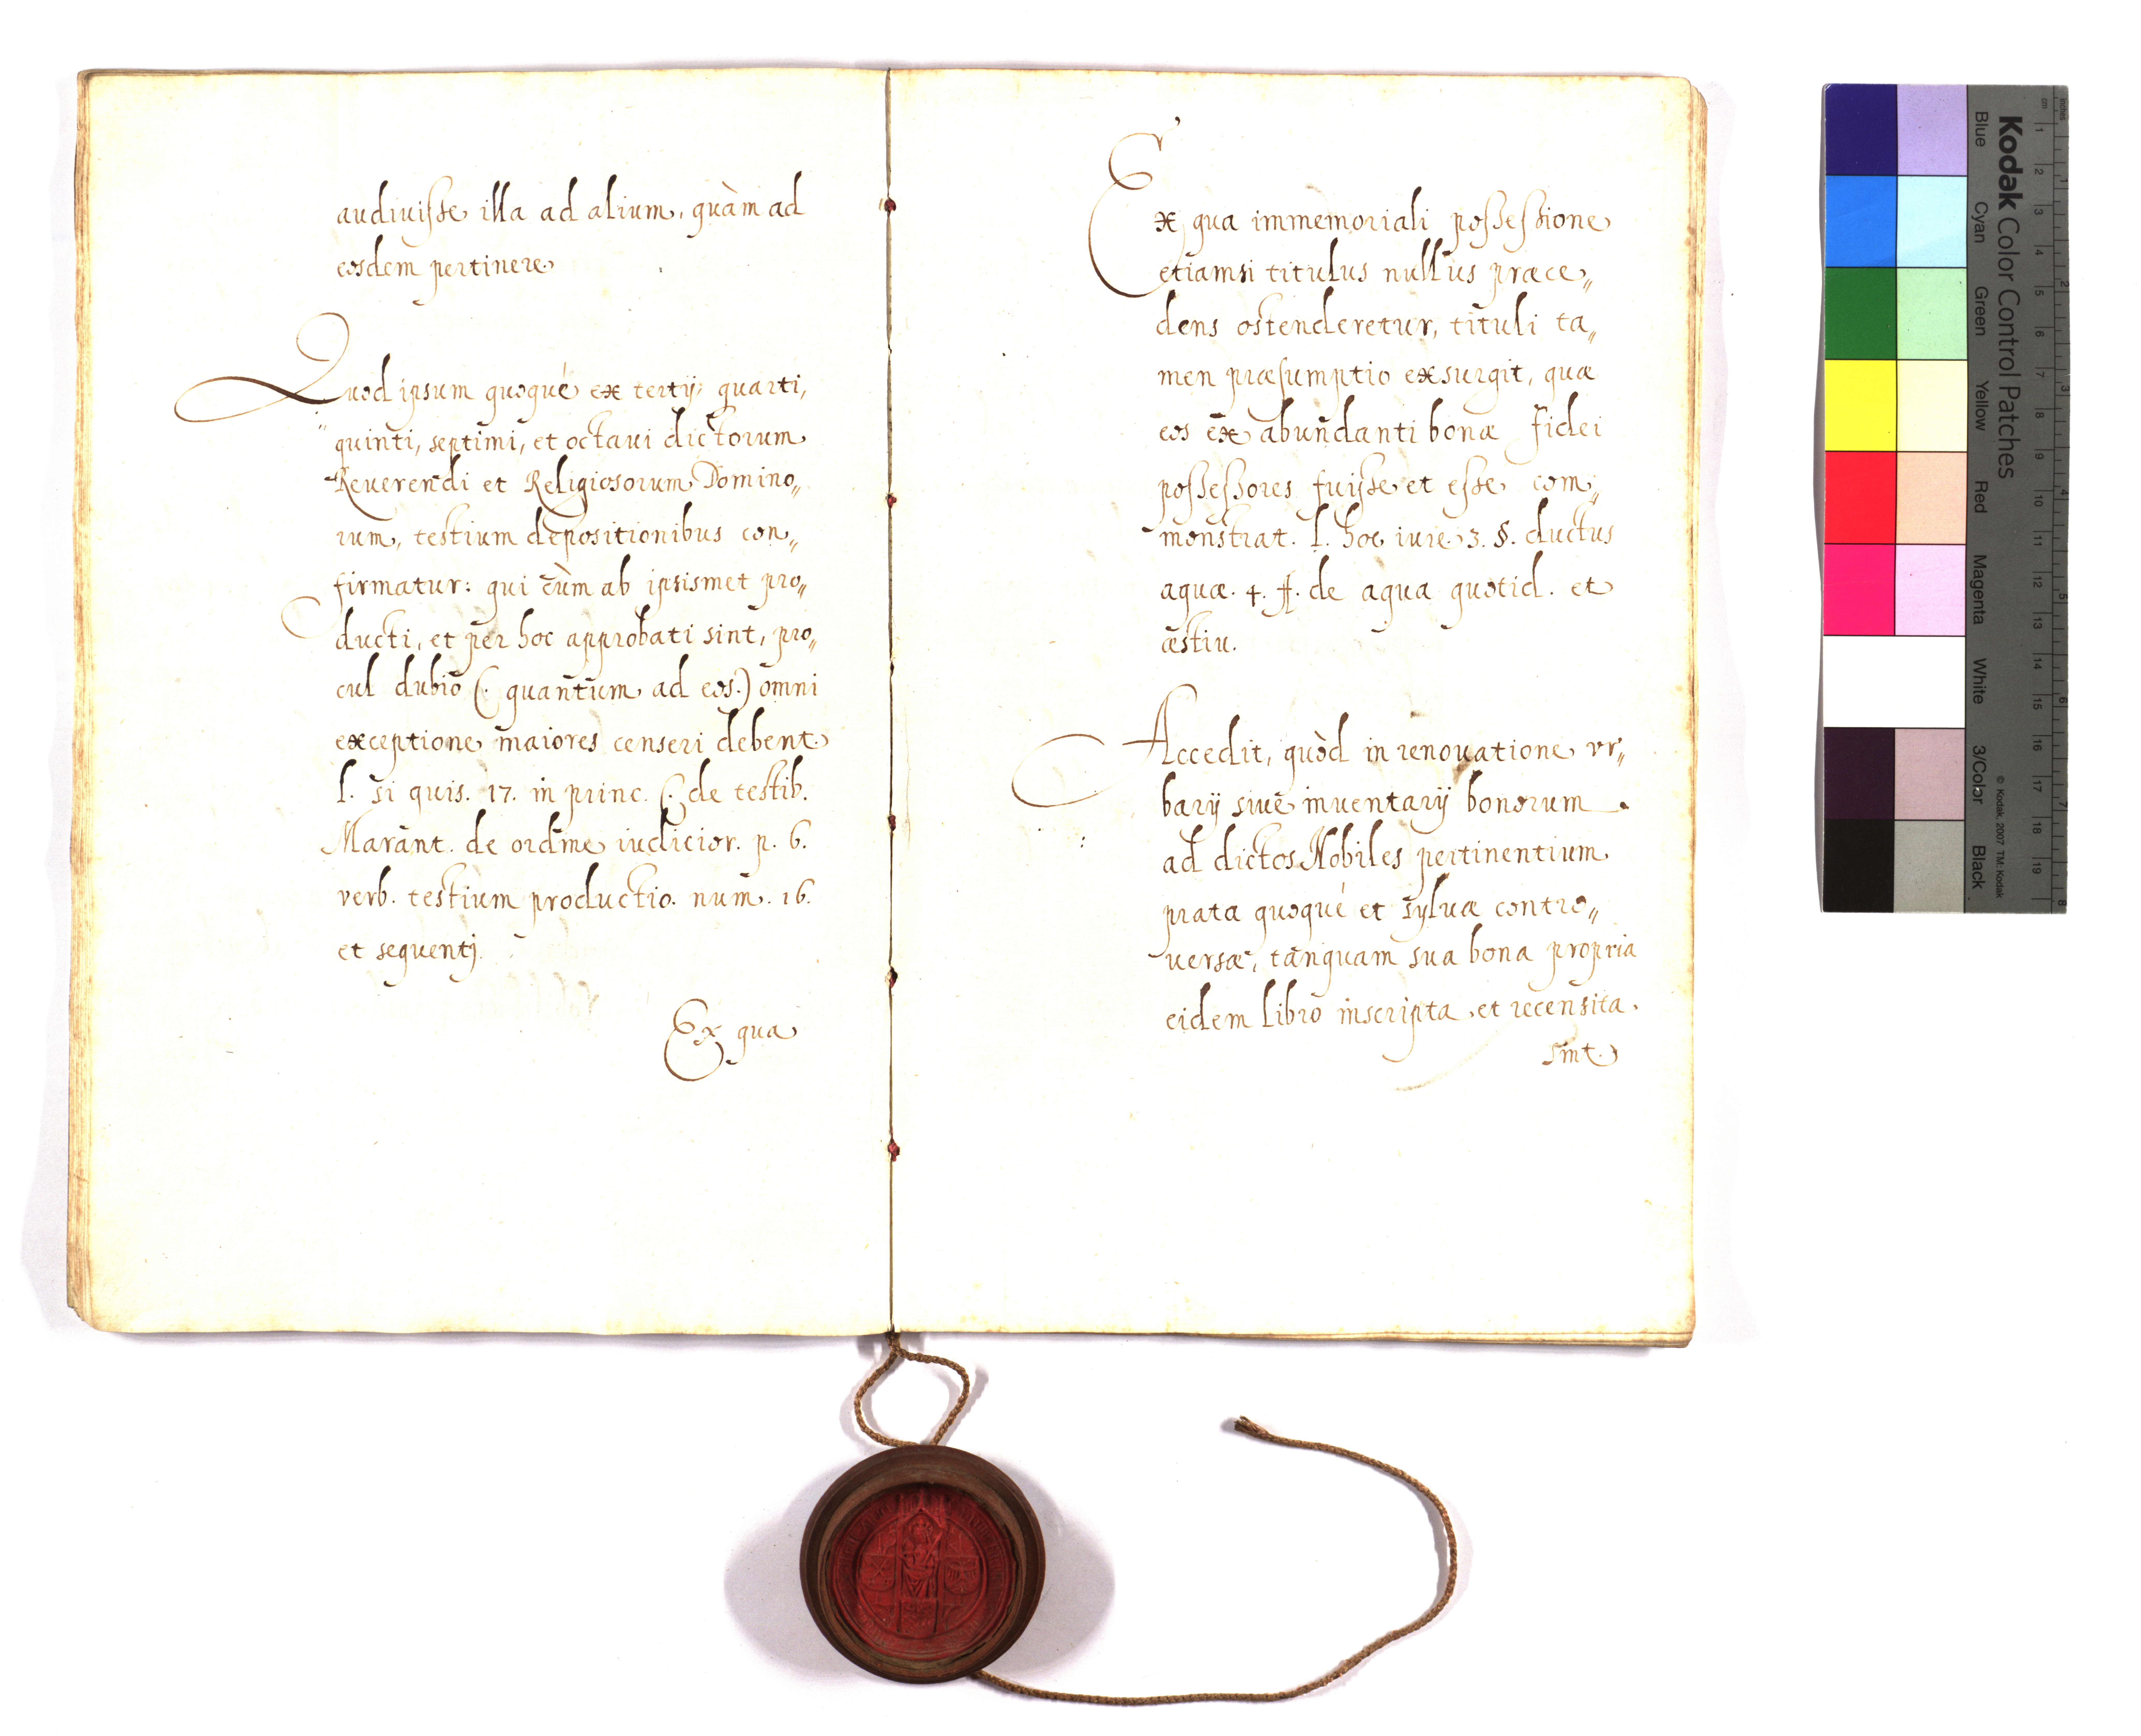 audiuisse illa ad alium, quàm ad
eosdem pertinere
Quod ipsum quoque ex tertij, quarti,
quinti, septimi, et octaui dictorum
Reuerendi et Religiosorum Domino„
rum, testium depositionibus con„
firmatur: qui cùm ab ipsismet pro„
ducti, et per hoc approbati sint, pro„
cul dubio (: quantum ad eos:) omni
exceptione maiores censeri debent.
l. si quis. 17. in princ. C. de testib.
Marant. de ordine iudicior. p. 6.
verb. testium productio. num. 16.
et sequentj.
Ex qua
Ex qua immemoriali possessione
etiamsi titulus nullus præce„
dens ostenderetur, tituli ta„
men præsumptio exsurgit, quæ
eos ex abundanti bonæ fidei
possessores fuisse et esse com„
monstrat. l. hoc iure. 3. §. ductus
aquæ. 4. ff. de aqua quotid. et
æstiu.
Accedit, quòd in renouatione vr„
barij siue inuentarij bonorum
ad dictos Nobiles pertinentium
prata quoque et syluæ contro„
uersæ, tanquam sua bona propria
eidem libro inscripta, et recensita
sint.
Kodak Color Control Patches
Blue Cyan Green Yellow Red Magenta White 3/Color Black
© Kodak, 2007 TM: Kodak
cm 1 2 3 4 5 6 7 8 9 10 11 12 13 14 15 16 17 18 19
inches 1 2 3 4 5 6 7 8